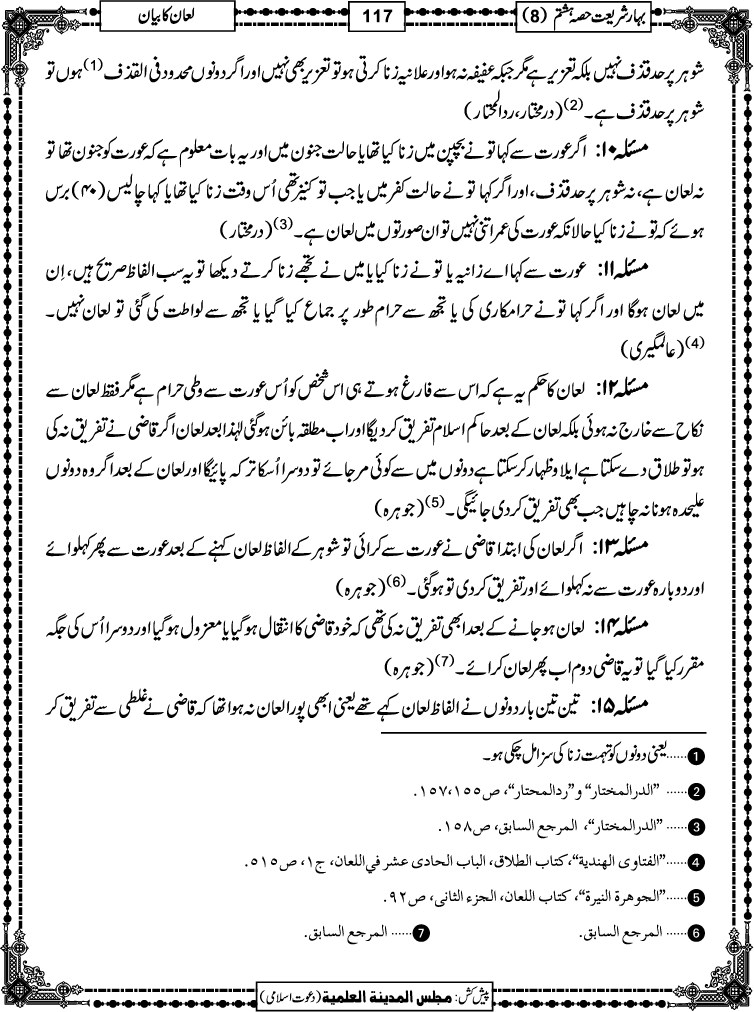 بہارِ شریعت حصہ ہشتم (8)
117
لعان کا بیان
شوہر پر حد قذف نہیں بلکہ تعزیر ہے مگر جبکہ عفیفہ نہ ہو اور علانیہ زنا کرتی ہو تو تعزیر بھی نہیں اور اگر دونوں محدود فی القذف (1) ہوں تو
شوہر پر حد قذف ہے۔ (2) (درمختار، ردالمحتار)
مسئلہ ۱۰: اگر عورت سے کہا تو نے بچپن میں زنا کیا تھا یا حالت جنون میں اور یہ بات معلوم ہے کہ عورت کو جنون تھا تو
نہ لعان ہے، نہ شوہر پر حد قذف، اور اگر کہا تو نے حالت کفر میں یا جب تو کنیز تھی اُس وقت زنا کیا تھا یا کہا چالیس (۴۰) برس
ہوئے کہ تو نے زنا کیا حالانکہ عورت کی عمر اتنی نہیں تو ان صورتوں میں لعان ہے۔ (3) (درمختار)
مسئلہ ۱۱: عورت سے کہا اے زانیہ یا تو نے زنا کیا یا میں نے تجھے زنا کرتے دیکھا تو یہ سب الفاظ صریح ہیں، اِن
میں لعان ہوگا اور اگر کہا تو نے حرامکاری کی یا تجھ سے حرام طور پر جماع کیا گیا یا تجھ سے لواطت کی گئی تو لعان نہیں۔
(4) (عالمگیری)
مسئلہ ۱۲: لعان کا حکم یہ ہے کہ اس سے فارغ ہوتے ہی اس شخص کو اُس عورت سے وطی حرام ہے مگر فقط لعان سے
نکاح سے خارج نہ ہوئی بلکہ لعان کے بعد حاکم اسلام تفریق کر دیگا اور اب مطلقہ بائن ہوگئی لہٰذا بعد لعان اگر قاضی نے تفریق نہ کی
ہو تو طلاق دے سکتا ہے ایلا و ظہار کر سکتا ہے دونوں میں سے کوئی مر جائے تو دوسرا اُسکا ترکہ پائیگا اور لعان کے بعد اگر وہ دونوں
علیحدہ ہونا نہ چاہیں جب بھی تفریق کر دی جائیگی۔ (5) (جوہرہ)
مسئلہ ۱۳: اگر لعان کی ابتدا قاضی نے عورت سے کرائی تو شوہر کے الفاظ لعان کہنے کے بعد عورت سے پھر کہلوائے
اور دوبارہ عورت سے نہ کہلوائے اور تفریق کر دی تو ہوگئی۔ (6) (جوہرہ)
مسئلہ ۱۴: لعان ہو جانے کے بعد ابھی تفریق نہ کی تھی کہ خود قاضی کا انتقال ہوگیا یا معزول ہوگیا اور دوسرا اُس کی جگہ
مقرر کیا گیا تو یہ قاضی دوم اب پھر لعان کرائے۔ (7) (جوہرہ)
مسئلہ ۱۵: تین تین بار دونوں نے الفاظ لعان کہے تھے یعنی ابھی پورا لعان نہ ہوا تھا کہ قاضی نے غلطی سے تفریق کر
1 ......یعنی دونوں کو تہمت زنا کی سزا مل چکی ہو۔
2 ...... ”الدرالمختار“ و”ردالمحتار“، ص۱۵۵،۱۵۷.
3 ...... ”الدرالمختار“، المرجع السابق، ص۱۵۸.
4 ......”الفتاوى الهندية“،كتاب الطلاق، الباب الحادى عشر في اللعان، ج۱، ص۵۱۵.
5 ......”الجوهرة النيرة“، كتاب اللعان، الجزء الثانى، ص۹۲.
6 ...... المرجع السابق.
7 ...... المرجع السابق.
پیش کش: مجلس المدینة العلمیة (دعوت اسلامی)